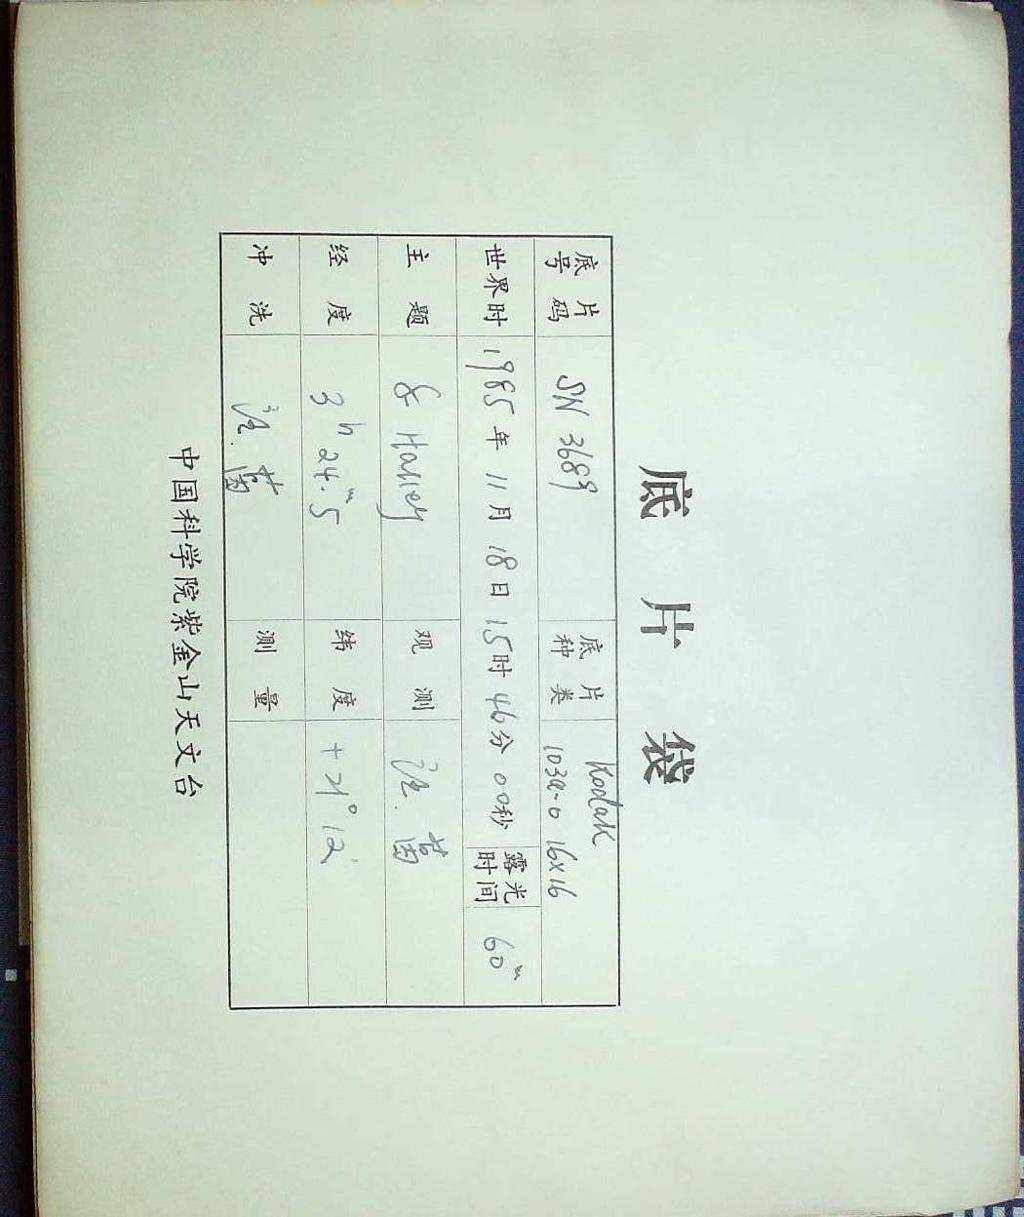 底片袋
底片号码 SN 3689 底片种类 Kodak 103a-O 16x16
世界时 1985年11月18日15时46分00秒 露光时间 60m
主题 & Halley 观测
经度 3h24m.5 纬度 +21°12'
冲洗 测量
中国科学院紫金山天文台